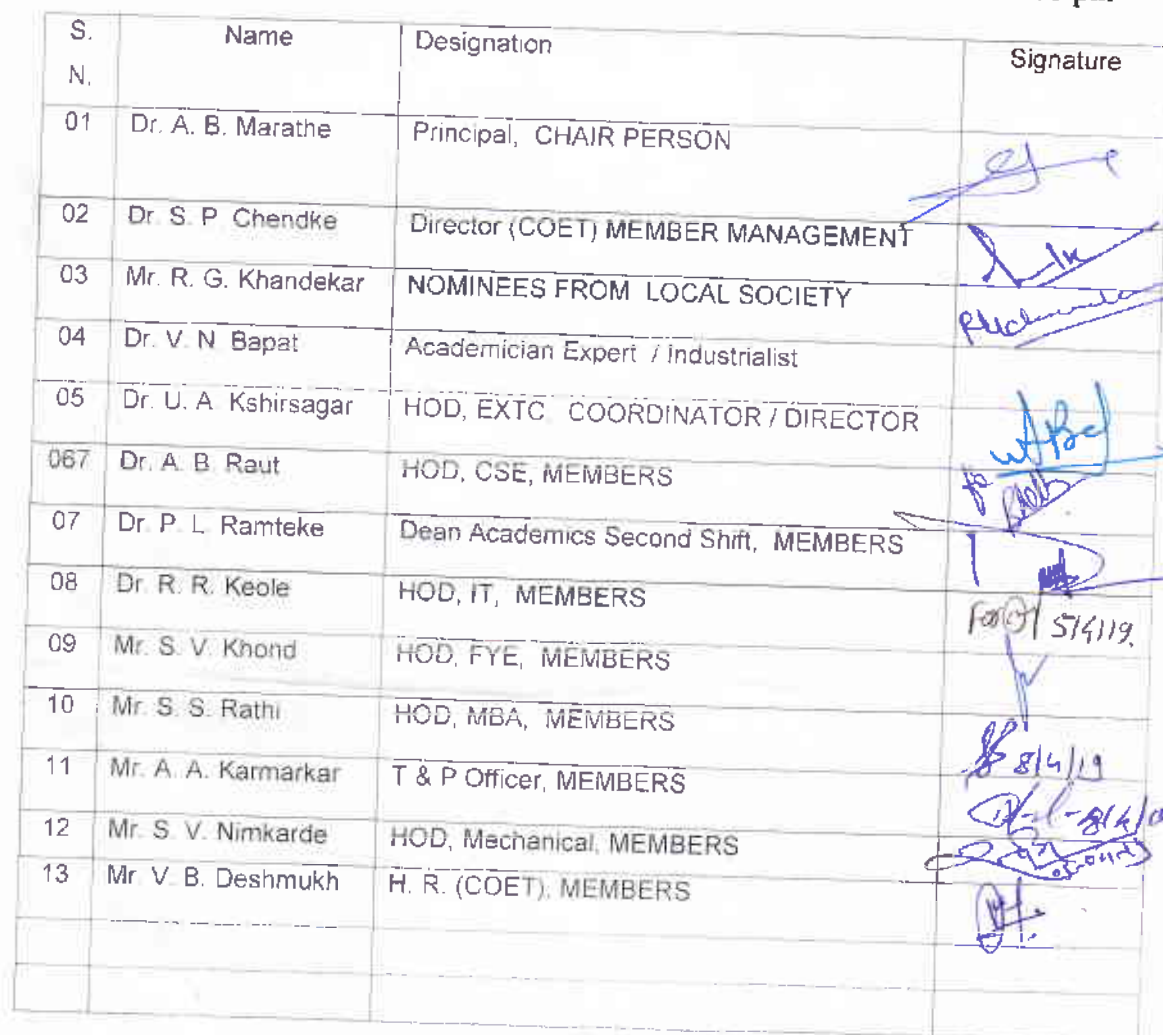 S. N. Name Designation Signature
01 Dr. A. B. Marathe Principal, CHAIR PERSON
02 Dr. S. P. Chendke Director (COET) MEMBER MANAGEMENT
03 Mr. R. G. Khandekar NOMINEES FROM LOCAL SOCIETY
04 Dr. V. N. Bapat Academician Expert / Industrialist
05 Dr. U. A. Kshirsagar HOD, EXTC. COORDINATOR / DIRECTOR
067 Dr. A. B. Raut HOD, CSE, MEMBERS
07 Dr. P. L. Ramteke Dean Academics Second Shift, MEMBERS
08 Dr. R. R. Keole HOD, IT, MEMBERS 5/4/19.
09 Mr. S. V. Khond HOD, FYE, MEMBERS
10 Mr. S. S. Rathi HOD, MBA, MEMBERS 8/4/19
11 Mr. A. A. Karmarkar T & P Officer, MEMBERS
12 Mr. S. V. Nimkarde HOD, Mechanical, MEMBERS
13 Mr. V. B. Deshmukh H. R. (COET), MEMBERS